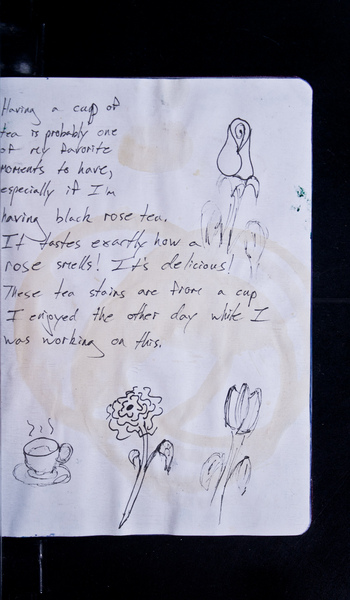 Having a cup of
tea is probably one
of my favorite
moments to have,
especially if I'm
having black rose tea.
It tastes exactly how a
rose smells! It's delicious!
These tea stains are from a cup
I enjoyed the other day while I
was working on this.